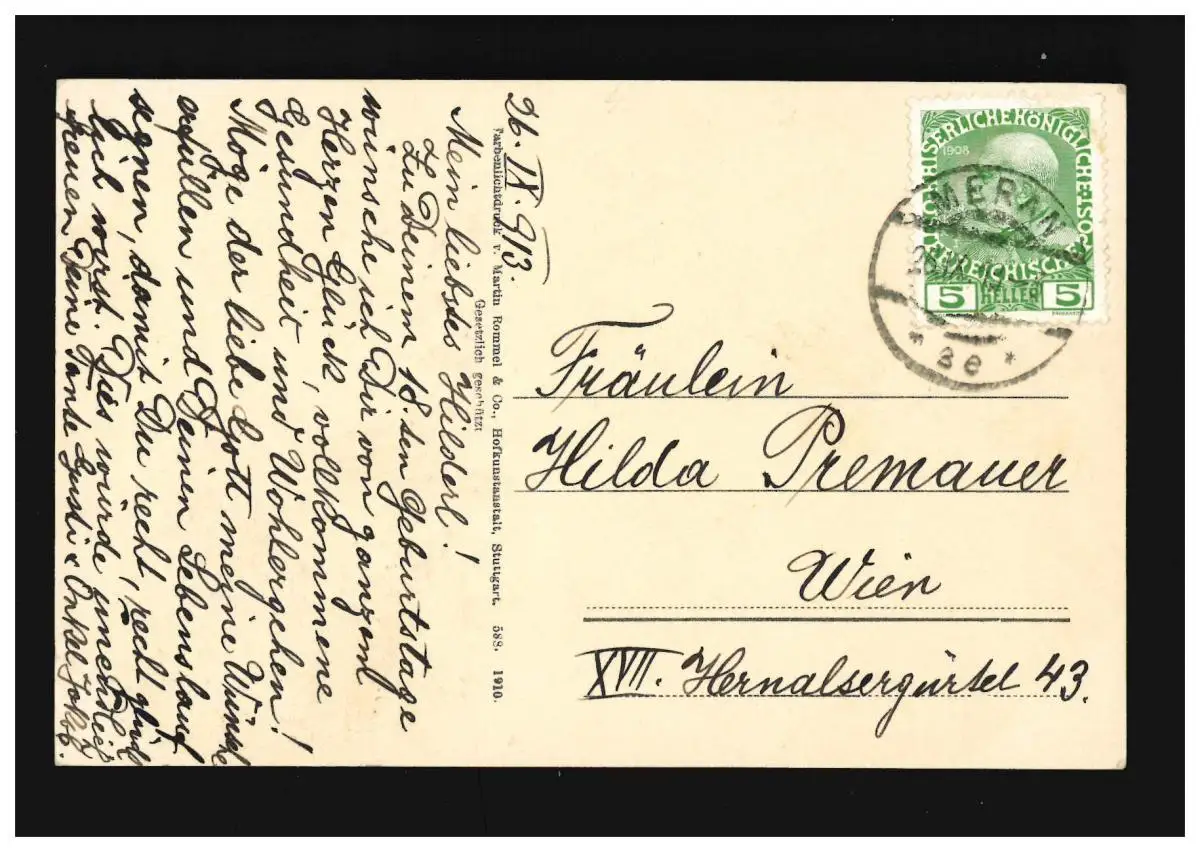 26. IX. 913.
Mein liebstes Hilderl!
Zu Deinem 18. ten Geburtstage
wünsche ich Dir von ganzem
Herzen Glück, vollkommene
Gesundheit und Wohlergehen!
Möge der liebe Gott meine Wünsche
erfüllen und Deinen Lebenslauf
segnen, damit Du recht, recht glück
lich wirst. Dies würde unendlich
freuen Deine Tante Gusti & Onkel Jakob.
Farbenlichtdruck v. Martin Rommel & Co., Hofkunstanstalt, Stuttgart. 588. 1910.
Gesetzlich geschützt
KAISERLICHE KÖNIGLICHE ÖSTERREICHISCHE POST
1908
5 HELLER 5
MERAN
* 3e *
Fräulein
Hilda Premauer
Wien
XVII. Hernalsergürtel 43.